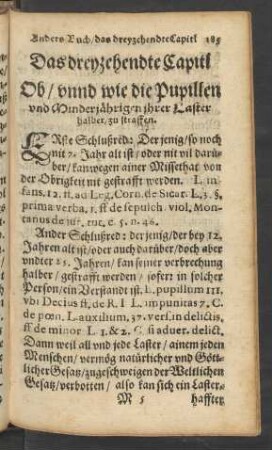 Anders Buch/das dreyzehendte Capitl 185
Das dreyzehendte Capitl
Ob/ vnnd wie die Pupillen
vnd Minderjährigen jhrer Laster
halber/ zu straffen.
ERste Schlußred: Der jenig/ so noch
nit 7. Jahr alt ist/ oder nit vil darü-
ber/ kan wegen ainer Missethat von
der Obrigkeit nit gestrafft werden. L. in-
fans. 12. ff. ad Leg. Corn. de Sicar. L. 3. §.
prima verba. 1. ff. de sepulch. viol. Mon-
tanus de c. 5. n. 46.
Ander Schlußred: der jenig/ der bey 12.
Jahren alt ist/ oder auch darüber/ doch aber
vndter 25. Jahren/ kan seiner verbrechung
halber/ gestrafft werden/ sofern in solcher
Person/ ein Verstandt ist. L. pupillum 111.
vbi Decius ff. de R. I. L. impunitas 7. C.
de pœn. L. auxilium. 37. vers. in delictis.
ff. de minor. L. 1. & 2. C. si aduer. delict.
Dann weil all vnd jede Laster/ ainem jeden
Menschen/ vermög natürlicher vnd Gött-
licher Gesatz/ zugeschweigen der Weltlichen
Gesatz/ verbotten/ also kan sich ein Laster-
M 5 hafftez